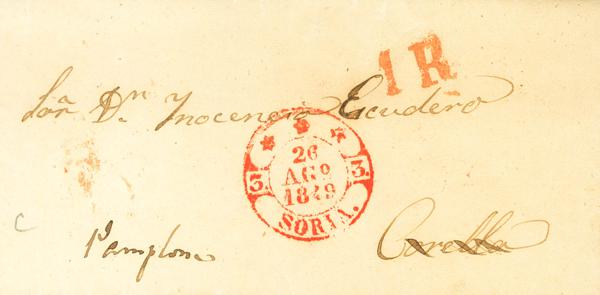 1 R
Sor. Dn. Inocencio Escudero
26
AGO
1849
3. 3.
SORIA.
Pamplona
Corella